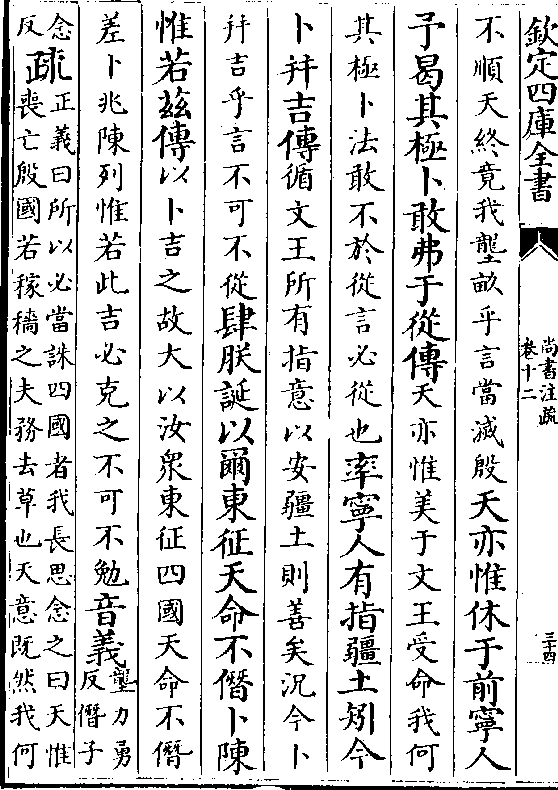 欽定四庫全書
尚書注疏
卷十二
三十四
不順天終竟我壟畝乎言當滅殷天亦惟休于前寧人
予曷其極卜敢弗于從傳天亦惟美于文王受命我何
其極卜法敢不於從言必從也率寧人有指疆土矧今
卜并吉傳循文王所有指意以安疆土則善矣況今卜
并吉乎言不可不從肆朕誕以爾東征天命不僭卜陳
惟若茲傳以卜吉之故大以汝衆東征四國天命不僭
差卜兆陳列惟若此吉必克之不可不勉音義壟力勇
反僭子
念反疏正義曰所以必當誅四國者我長思念之曰天惟
喪亡殷國若稼穡之夫務去草也天意既然我何